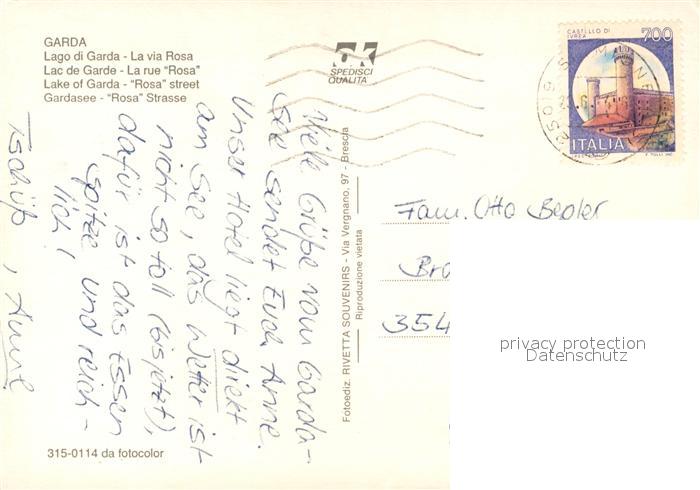 GARDA
Lago di Garda - La via Rosa
Lac de Garde - La rue "Rosa"
Lake of Garda - "Rosa" street
Gardasee - "Rosa" Strasse
SPEDISCI
QUALITÀ
CASTELLO DI
IVREA
700
ITALIA
25019
Viele Grüße vom Garda-
see sendet Euch Anne.
Unser Hotel liegt direkt
am See, das Wetter ist
nicht so toll (bis jetzt),
dafür ist das Essen
spitze und reich-
lich!
Tschüß, Anne
Fotoediz. RIVETTA SOUVENIRS - Via Vergnano, 97 - Brescia
Riproduzione vietata
Fam. Otto
Bro
354
privacy protection
Datenschutz
315-0114 da fotocolor